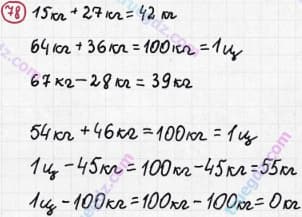 78 15кг + 27кг = 42 кг
64кг + 36кг = 100кг = 1ц
67кг − 28кг = 39кг
54кг + 46кг = 100кг = 1ц
1ц − 45кг = 100кг − 45кг = 55кг
1ц − 100кг = 100кг − 100кг = 0кг